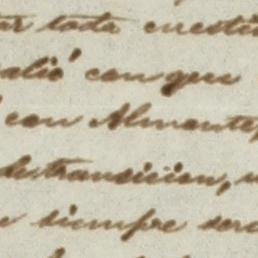 toda cuesti
salió con que
con Almonte,
de transicion,
siempre ser